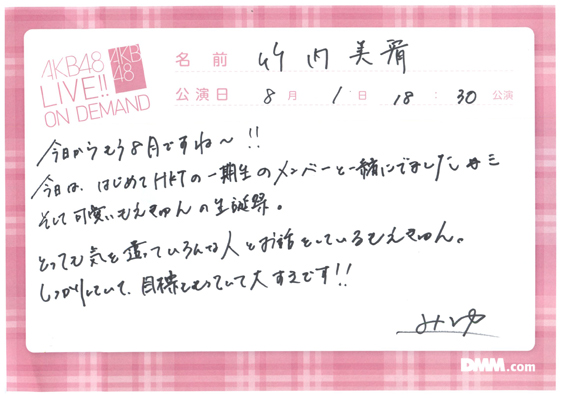 AKB48
LIVE!!
ON DEMAND
AKB
48
名前 竹内美宥
公演日 8月 1日 18:30 公演
今日からもう8月ですね〜!!
今日は、はじめてHKTの一期生のメンバーと一緒にでました
そして可愛いもえきゅんの生誕祭。
とっても気を遣っていろんな人とお話をしているもえきゅん。
しっかりしていて、目標をもっていて大すきです!!
みゆ
DMM.com